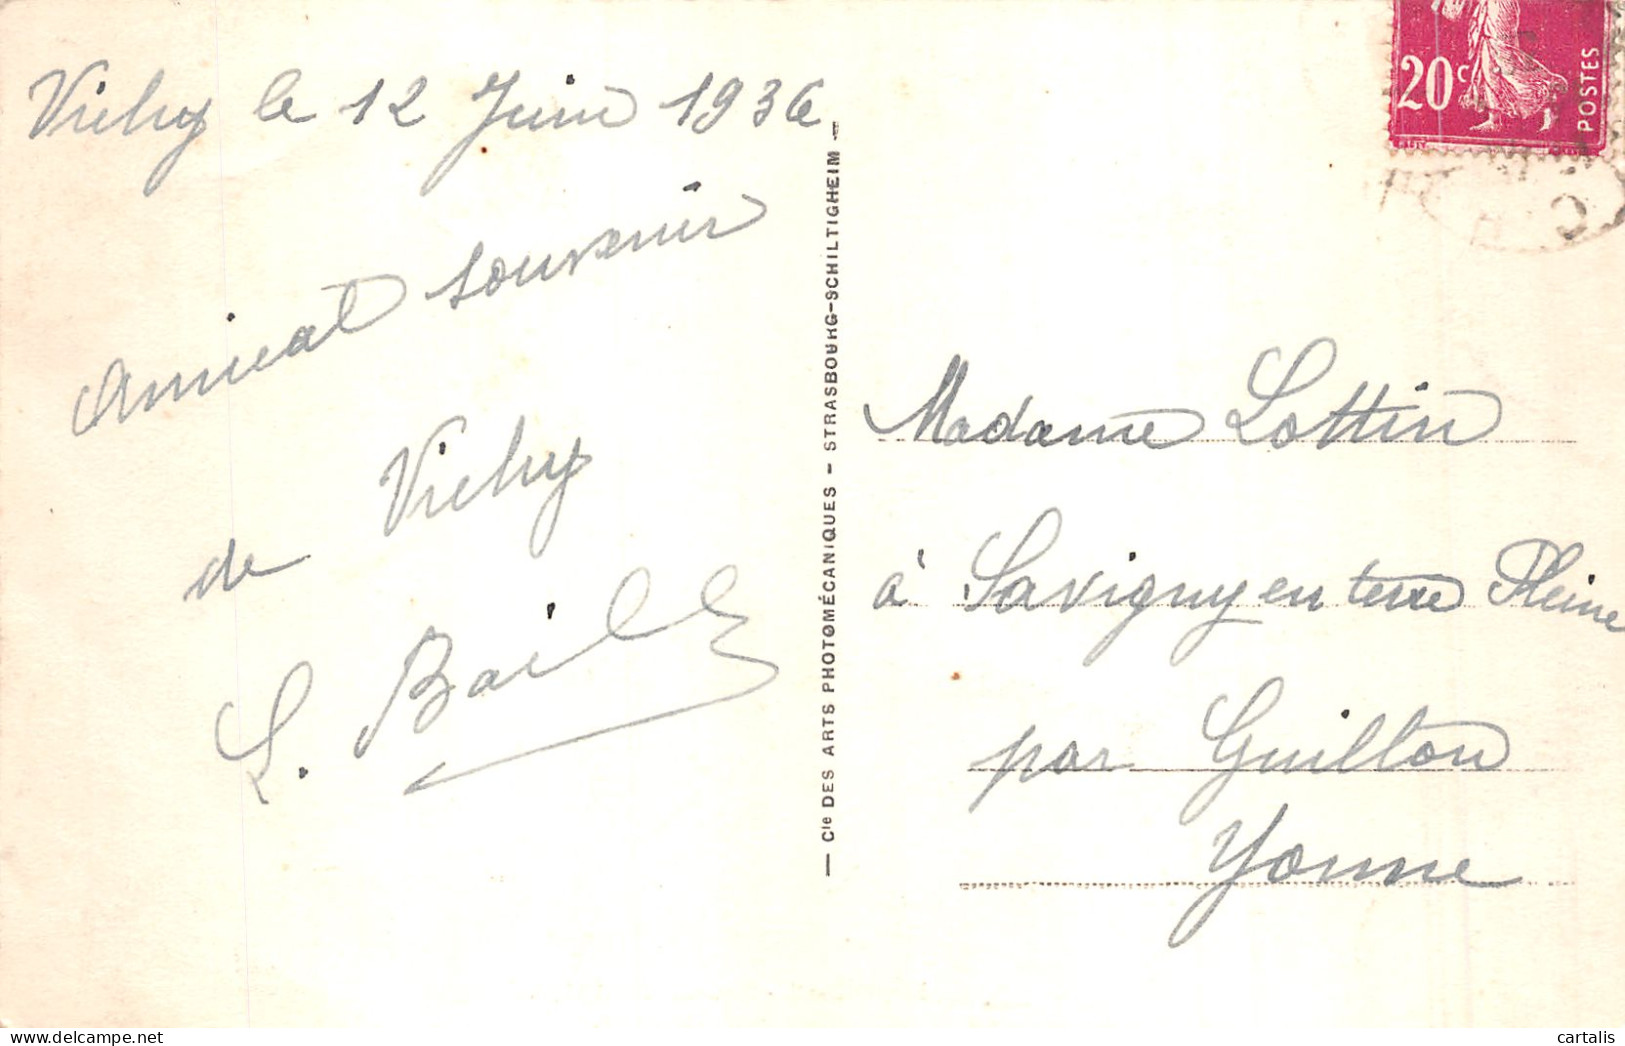 Vichy le 12 Juin 1936
Amical souvenir
de Vichy
L. Baill
Cie DES ARTS PHOTOMÉCANIQUES - STRASBOURG-SCHILTIGHEIM
20c
POSTES
Madame Lottin
à Savigny en terre Pleine
par Guillon
Yonne
cartalis